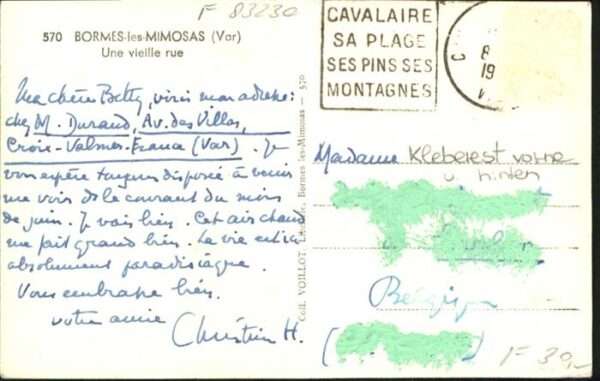 F 83230
570 BORMES-les-MIMOSAS (Var)
Une vieille rue
CAVALAIRE
SA PLAGE
SES PINS SES
MONTAGNES
8
19
Ma chère Betty, voici mon adresse :
chez M. Durand, Av. des Villas,
Croix-Valmer-France (Var). Je
vous espère toujours disposée à venir
me voir dans le courant du mois
de juin. Je vais bien. Cet air chaud
me fait grand bien. La vie est ici
absolument paradisiaque.
Vous embrasse bien,
votre amie
Christin H.
Coll. VOILLOT, Bormes les Mimosas — 570
Madame Kleberest vorne
u hinten
Belgique
F 30,-